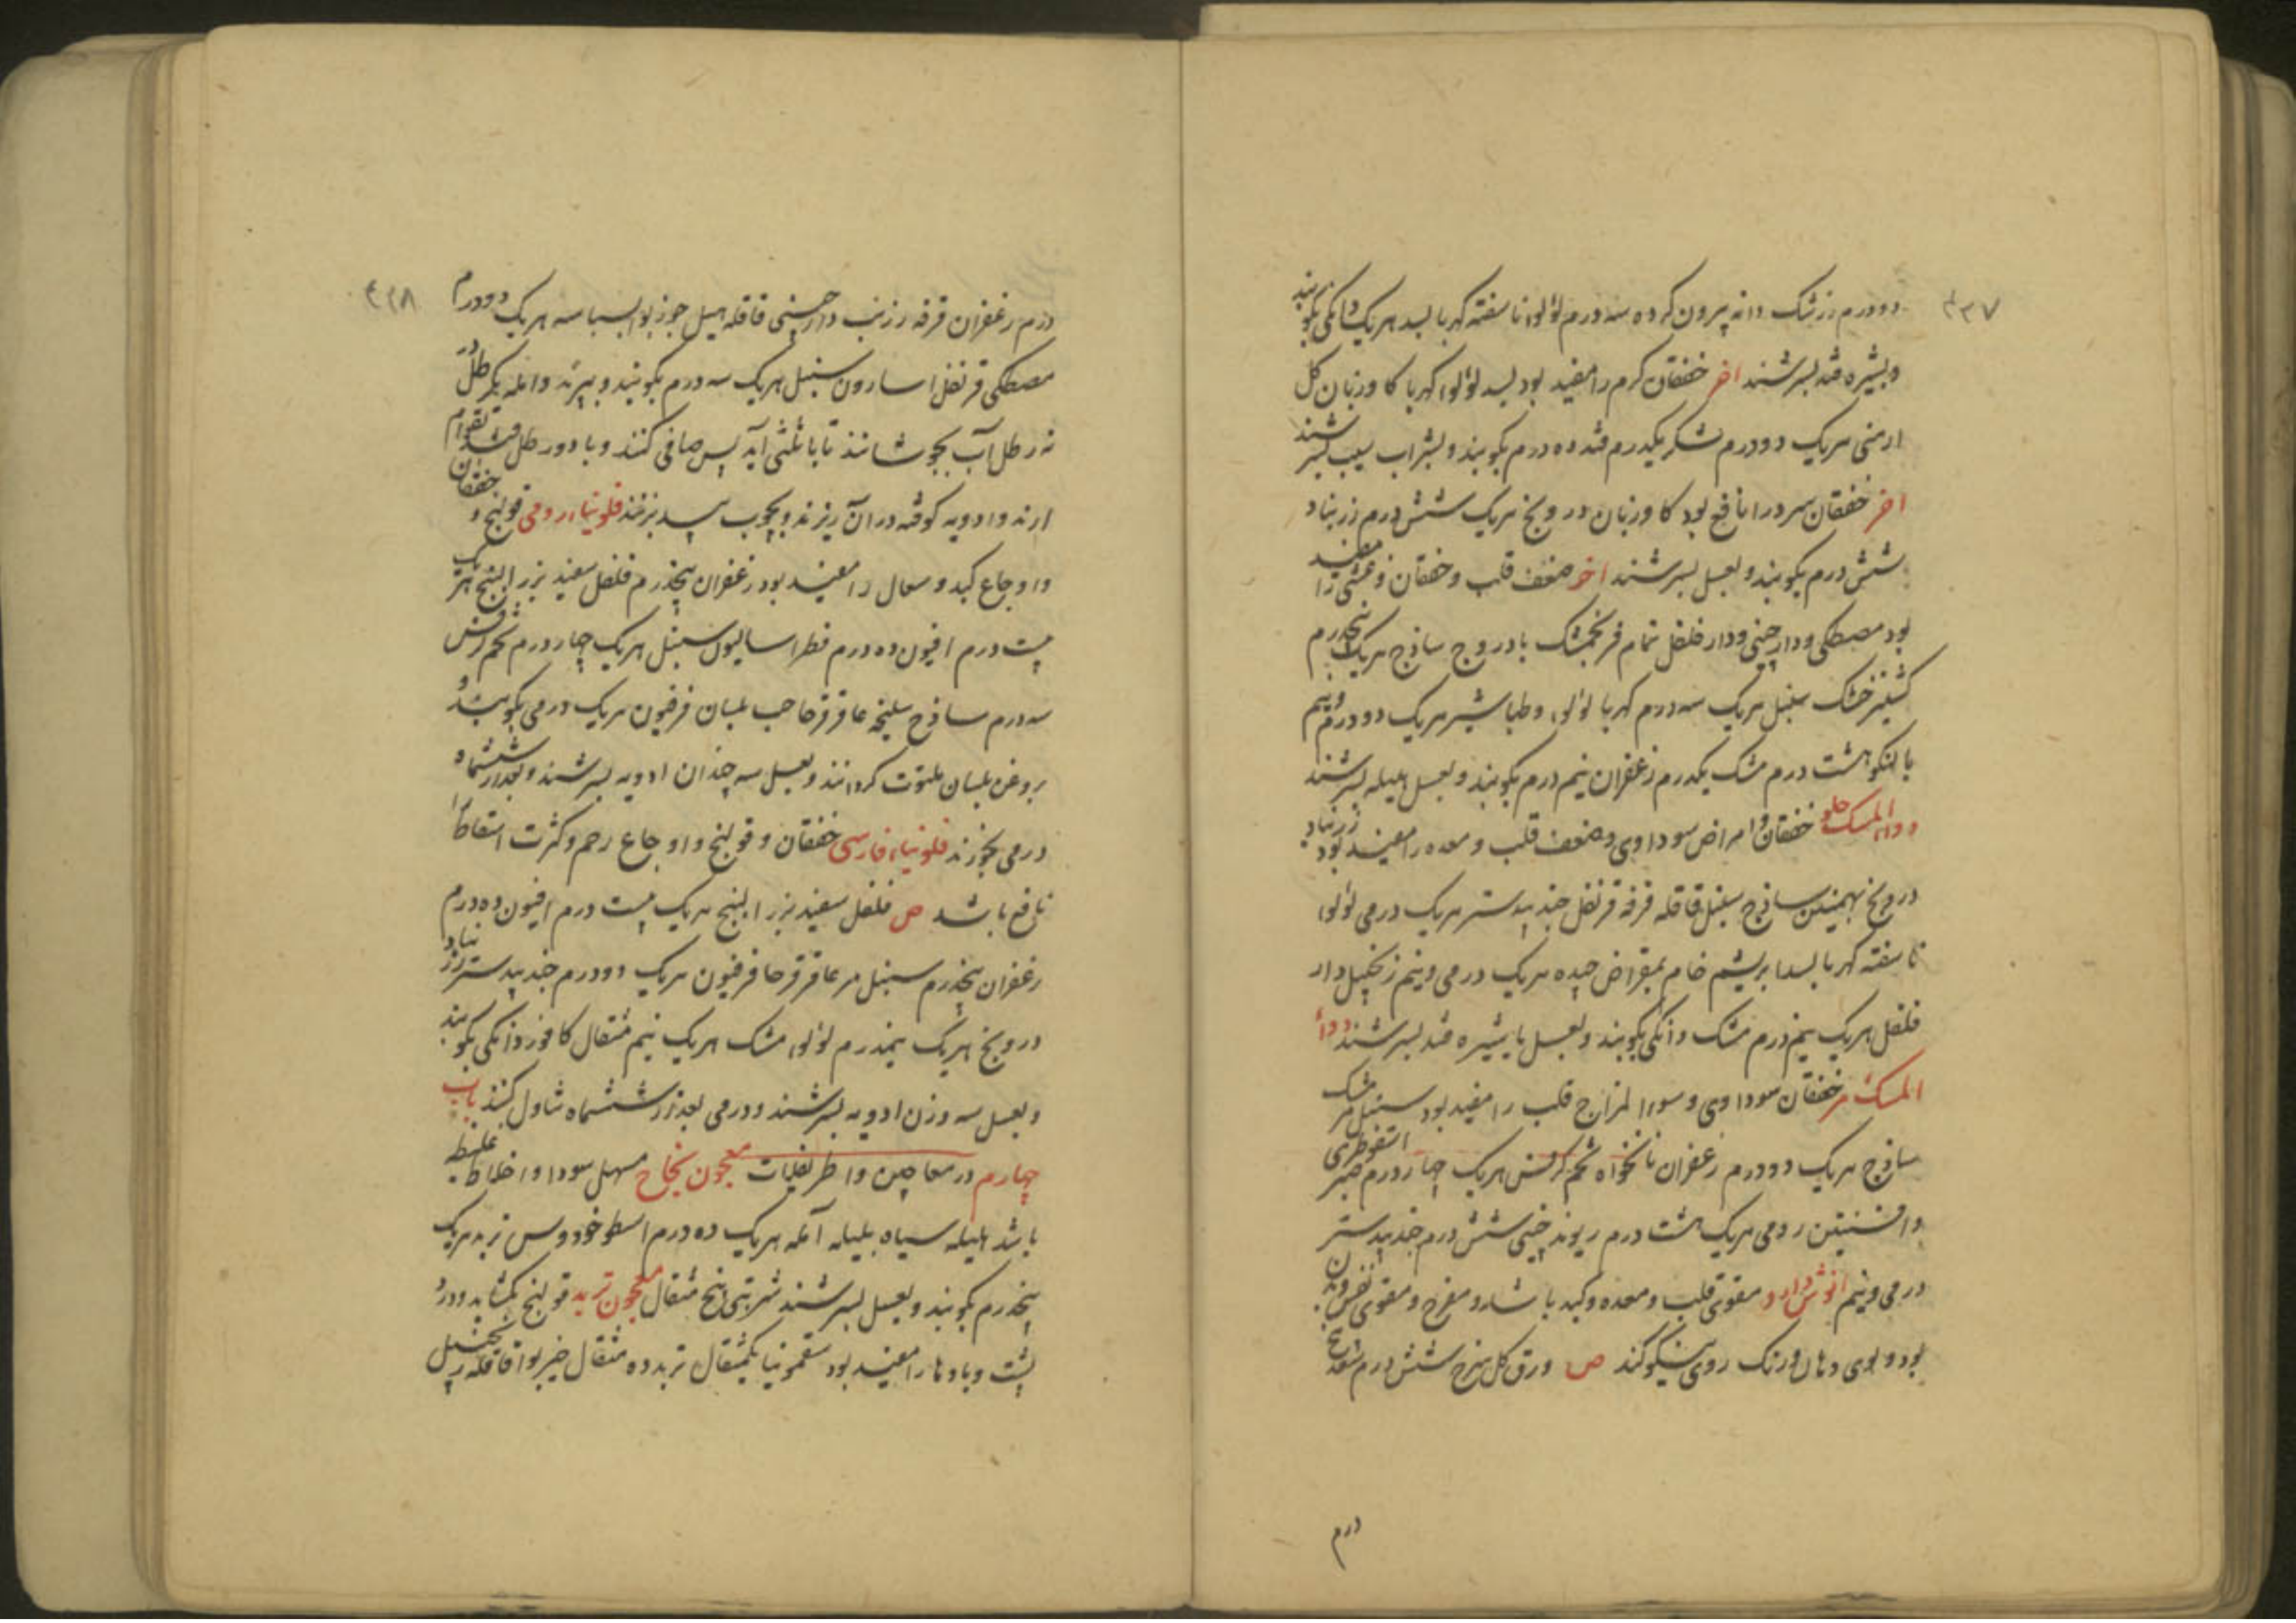 ۴۳۷
دودرم زرشک دانه بیرون کرده سه درم لؤلؤ ناسفته کهربا بسد هریک دانکی بکوبند
وبشیره قند بسرشند اخر خفقان کرم را مفید بود بسد لؤلؤ کهربا کاوزبان کل
ارمنی هریک دودرم شکر یکدرم قند ده درم بکوبند وبشراب سیب بسرشند
اخر خفقان سرد را نافع بود کاوزبان درونج هریک شش درم زرنباد
شش درم بکوبند وبعسل بسرشند اخر ضعف قلب وخفقان وغشی را مفید
بود مصطکی ودارچینی ودارفلفل نمام فرنجمشک بادروج ساذج هریک پنجدرم
کشنیز خشک سنبل هریک سه درم کهربا لؤلؤ وطباشیر هریک دودرم ونیم
بالنکو هشت درم مشک یکدرم زعفران نیم درم بکوبند وبعسل هلیله بسرشند
دواء المسک حلو خفقان وامراض سوداوی وضعف قلب ومعده را مفید بود زرنباد
درونج بهمنین ساذج سنبل قاقله قرفه قرنفل جندبیدستر هریک درمی لؤلؤ
ناسفته کهربا بسد ابریشم خام بمقراض چیده هریک درمی ونیم زنجبیل دار
فلفل هریک نیم درم مشک دانکی بکوبند وبعسل یا شیره قند بسرشند دواء
المسک مر خفقان سوداوی وسوء المزاج قلب را مفید بود سنبل مر مشک
ساذج هریک دودرم زعفران نانخواه تخم کرفس هریک چهاردرم صبر اسقوطری
وافسنتین رومی هریک هشت درم ریوند چینی شش درم جندبیدستر
درمی ونیم انوش دارو مقوی قلب ومعده وکبد باشد ومفرح ومقوی نفس وبدن
بود وبوی دهان ورنک روی نیکو کند ص ورق کل سرخ شش درم سعد پنج
درم
۴۳۸
درم زعفران قرفه زرنب دارچینی قاقله هیل جوزبوا بسباسه هریک دودرم
مصطکی قرنفل اسارون سنبل هریک سه درم بکوبند وبپزند وامله یکرطل در
نه رطل آب بجوشانند تا باثلثی آید پس صافی کنند وبا دورطل قند بقوام
ارند وادویه کوفته دران ریزند وبچوب بید برزنند فلونیاء رومی قولنج وخفقان
واوجاع کبد وسعال را مفید بود زعفران پنجدرم فلفل سفید بزر البنج هریک
بیست درم افیون ده درم فطراسالیون سنبل هریک چهاردرم تخم کرفس
سه درم ساذج سلیخه عاقرقرحا حب بلسان فرفیون هریک درمی بکوبند و
بروغن بلسان ملتوت کردانند وبعسل سه چندان ادویه بسرشند وبعد از ششماه
درمی بخورند فلونیاء فارسی خفقان وقولنج واوجاع رحم وکثرت اسقاط را
نافع باشد ص فلفل سفید بزر البنج هریک بیست درم افیون ده درم
زعفران پنجدرم سنبل مر عاقرقرحا فرفیون هریک دودرم جندبیدستر زرنباد
درونج هریک نیمدرم لؤلؤ مشک هریک نیم مثقال کافور دانکی بکوبند
وبعسل سه وزن ادویه بسرشند ودرمی بعد از ششماه تناول کنند باب
چهارم در معاجین واطریفلات معجون نجاح مسهل سودا واخلاط غلیظ
باشد هلیله سیاه بلیله آمله هریک ده درم اسطوخودوس تربد هریک
پنجدرم بکوبند وبعسل بسرشند شربتی پنج مثقال معجون تربد قولنج بکشاید ودرد
پشت وبادها را مفید بود سقمونیا یکمثقال تربد ده مثقال خیربوا قاقله زنجبیل